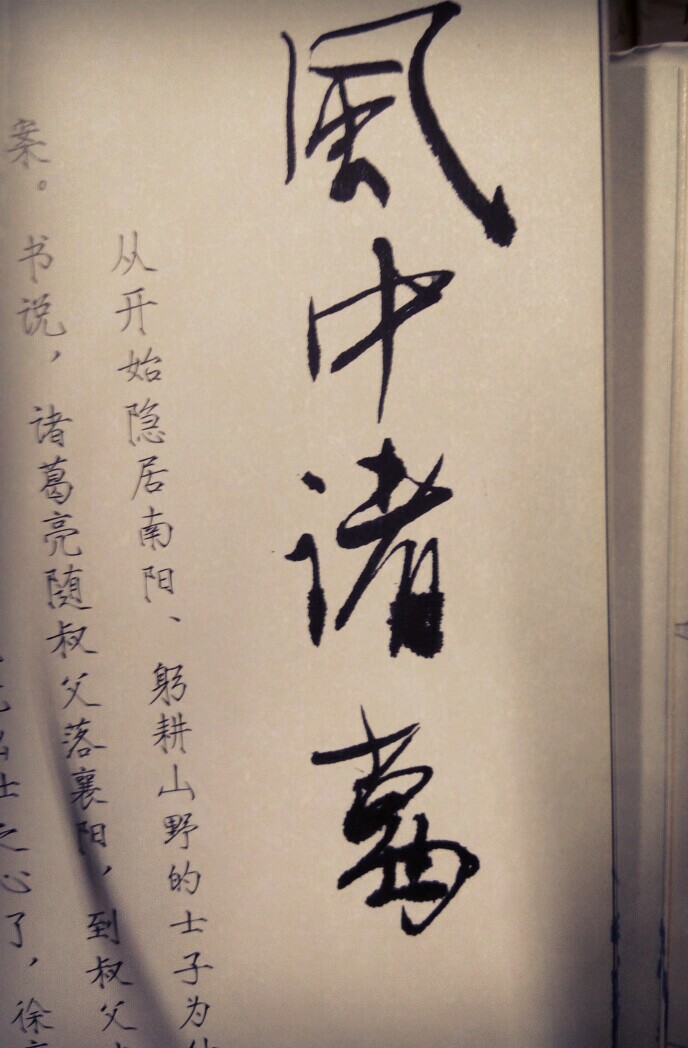 風中诸葛
从开始隐居南阳、躬耕山野的士子为
案。书说，诸葛亮随叔父落襄阳，到叔父
出士之心了，徐